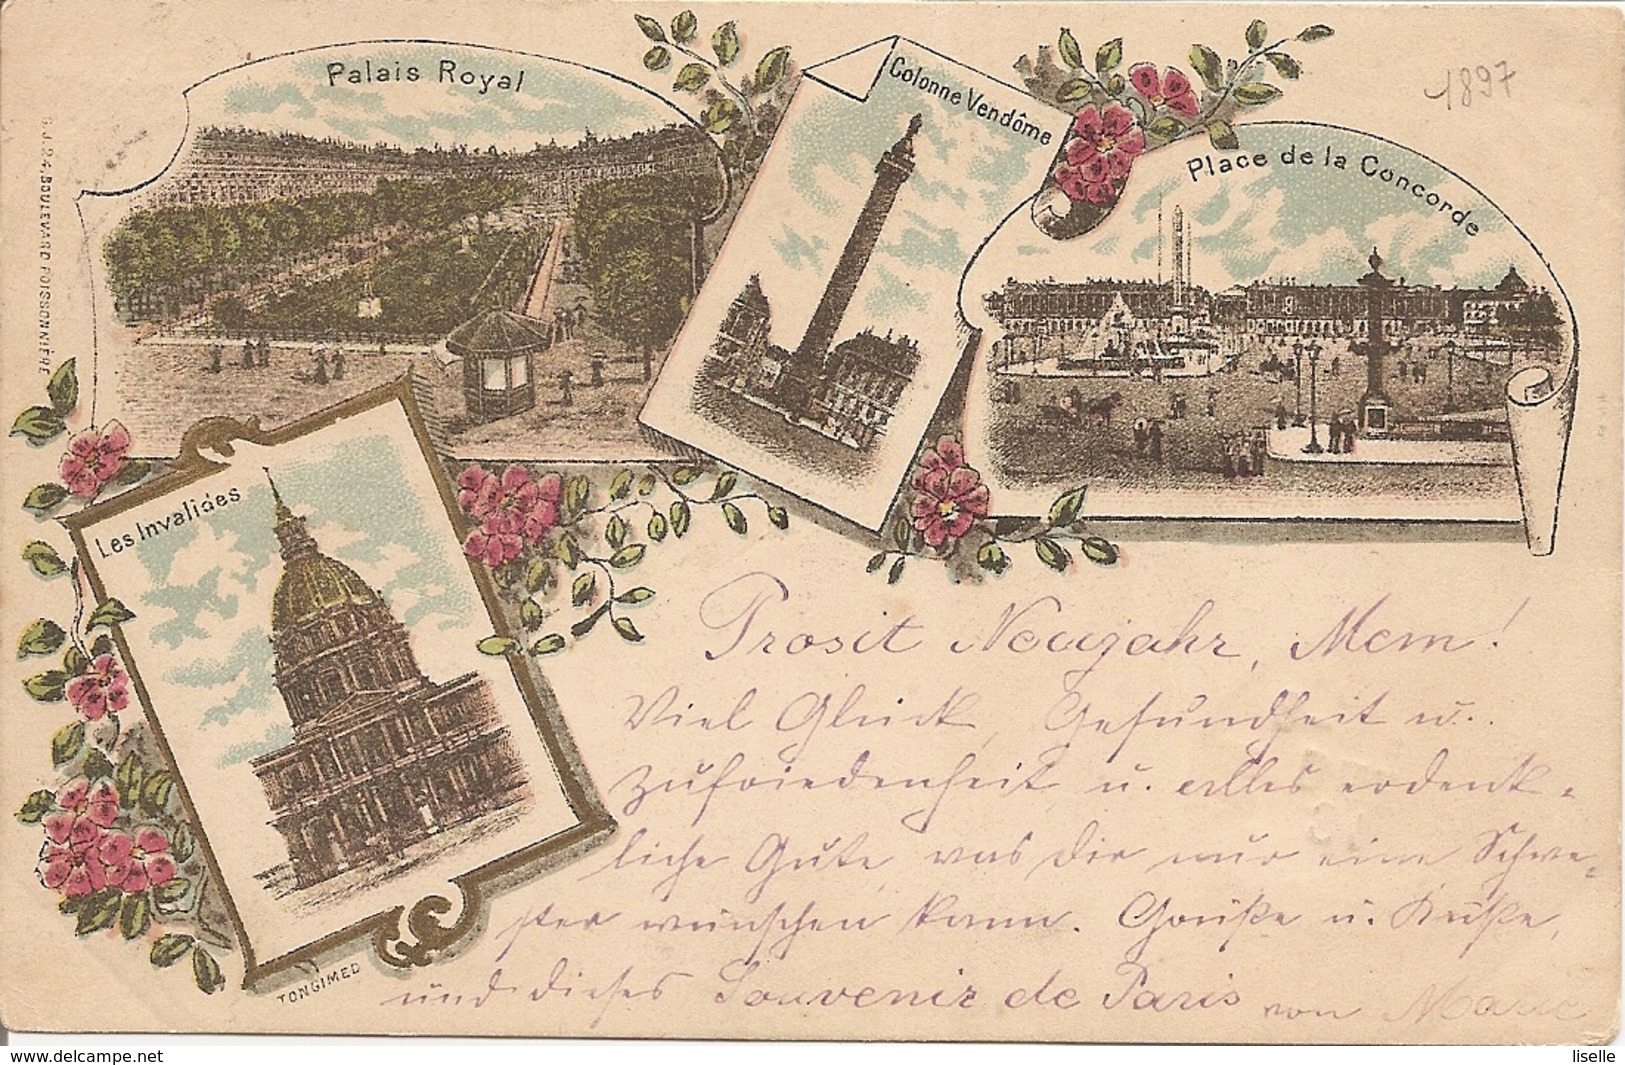 Palais Royal
Colonne Vendôme
1897
Place de la Concorde
4, BOULEVARD POISSONNIÈRE
Les Invalides
TONGIMED
Prosit Neujahr, Mem!
Viel Glück, Gesundheit u.
Zufriedenheit u. alles erdenk-
liche Gute, was Dir nur eine Schwe-
ster wünschen kann. Grüße u. Küße,
und dieses Souvenir de Paris von Marie
delcampe.net
liselle